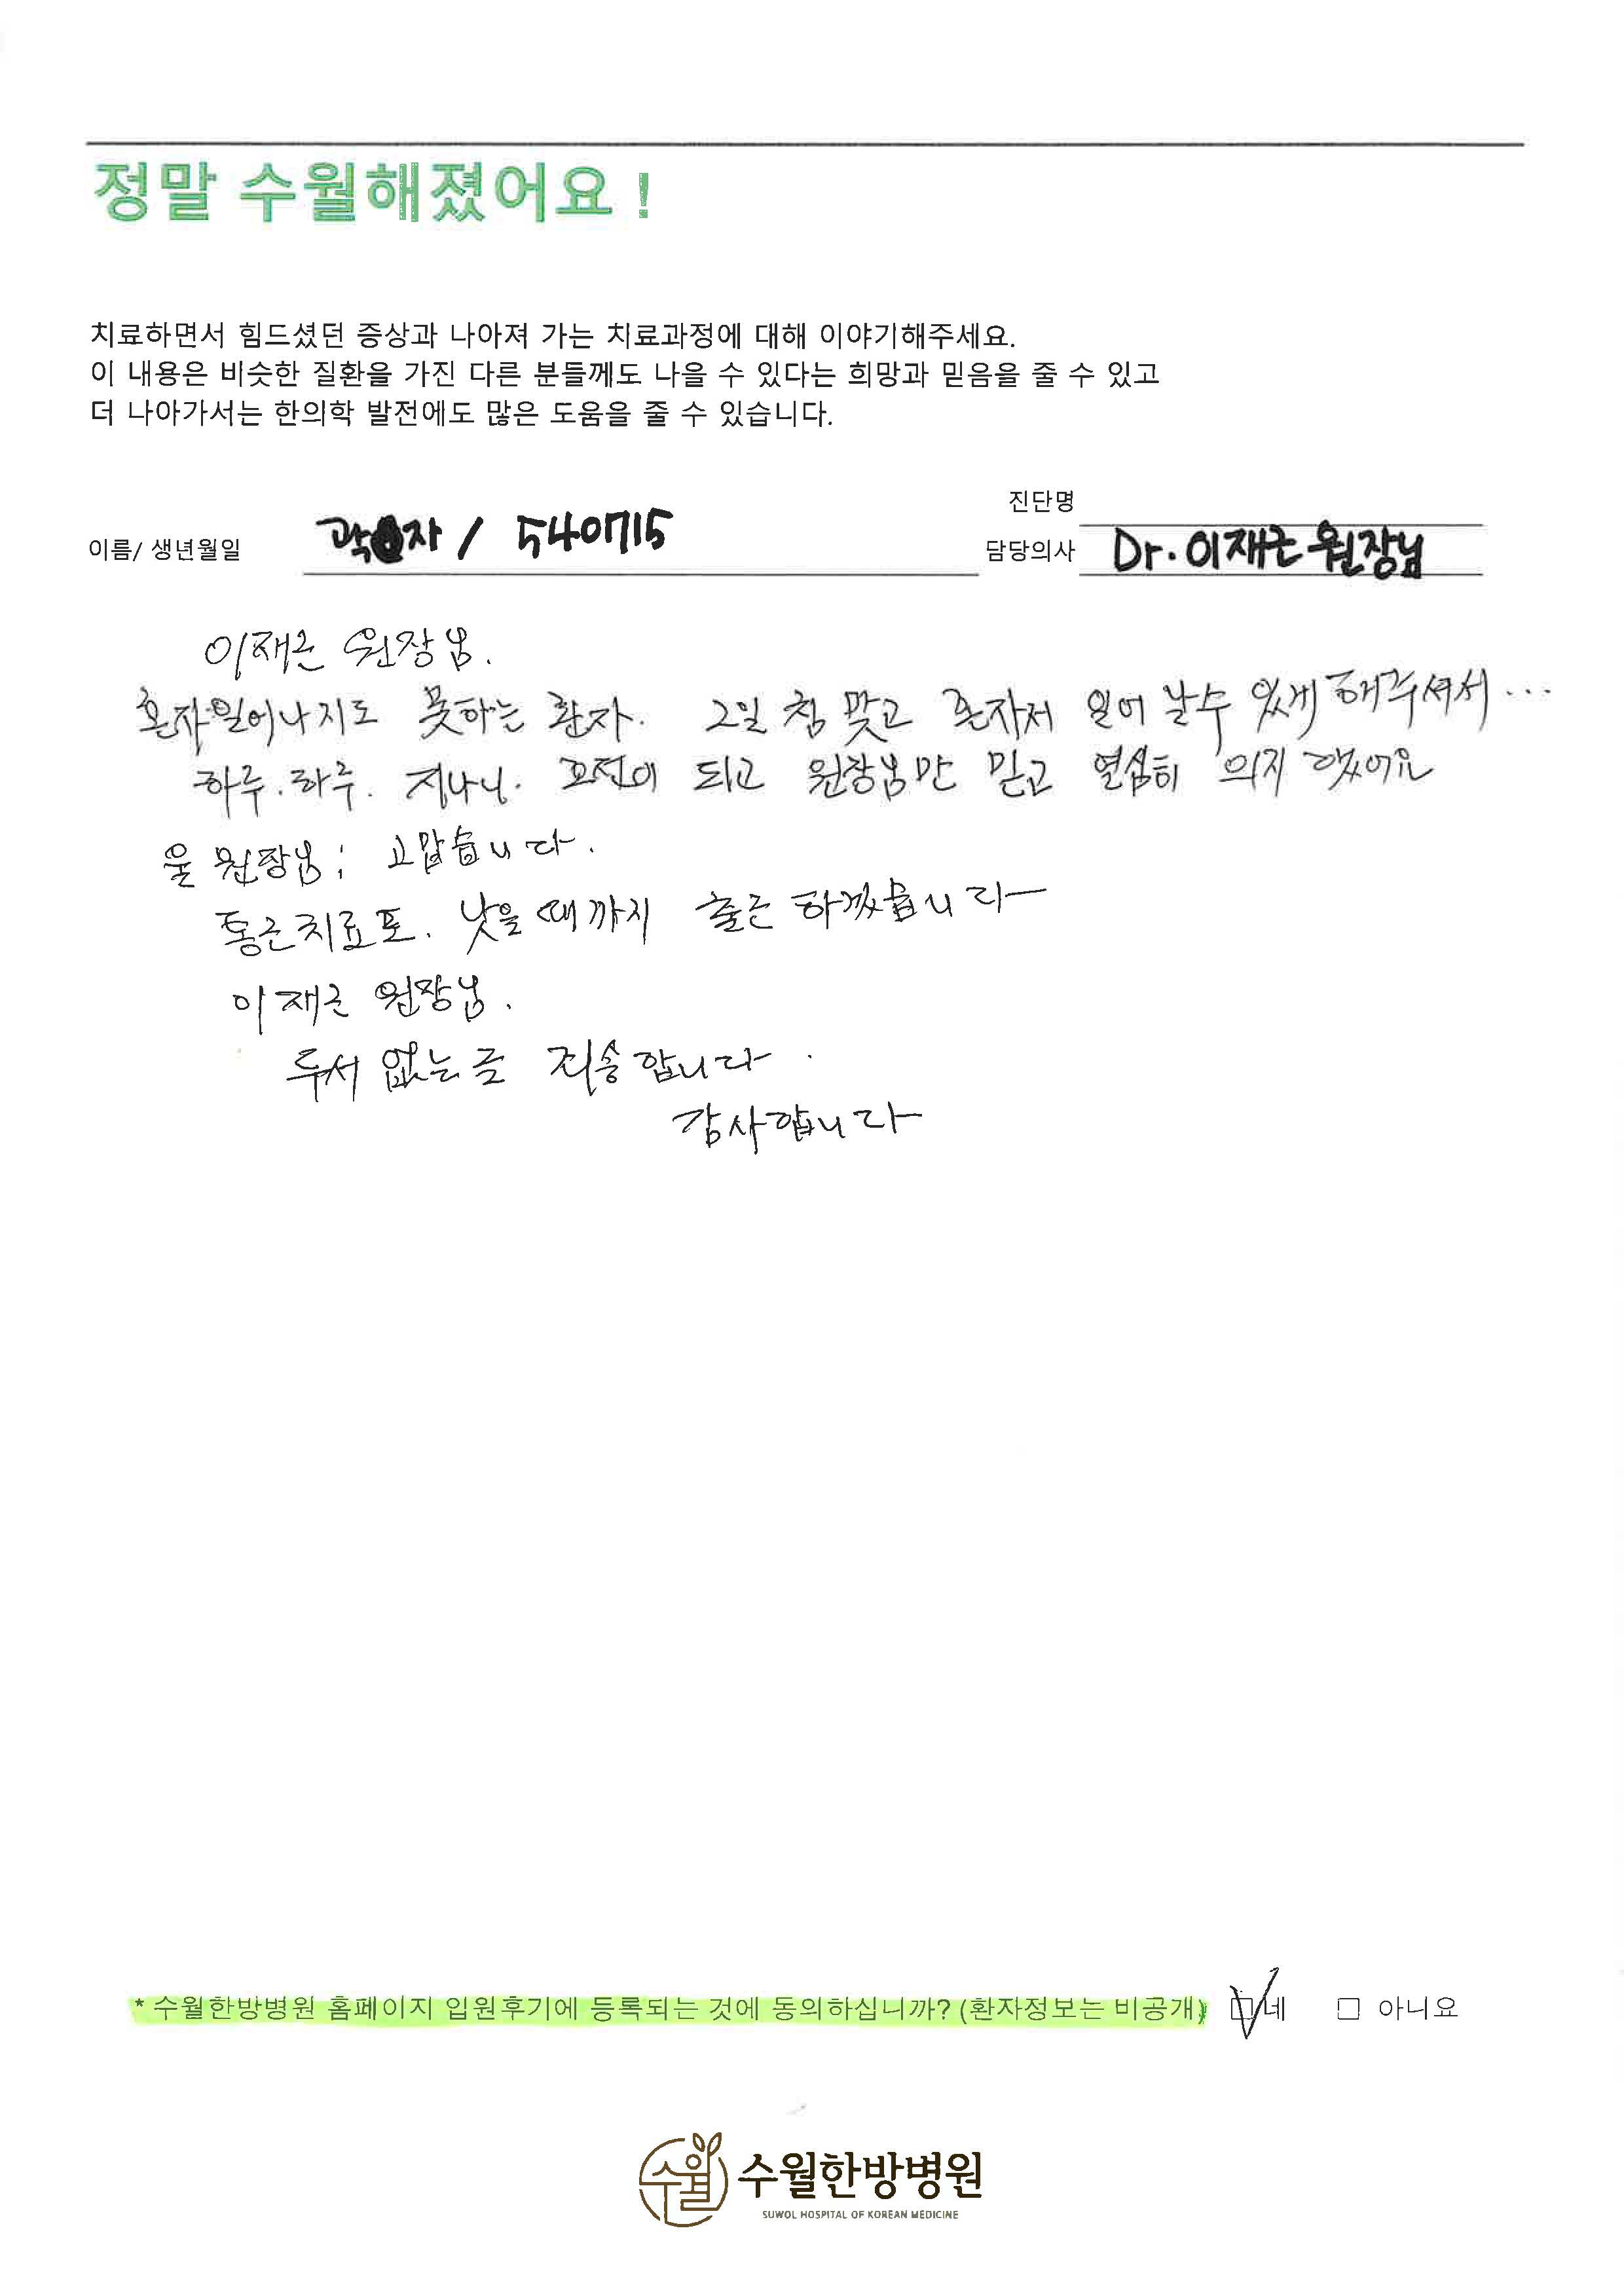 정말 수월해졌어요!
치료하면서 힘드셨던 증상과 나아져 가는 치료과정에 대해 이야기해주세요.
이 내용은 비슷한 질환을 가진 다른 분들께도 나을 수 있다는 희망과 믿음을 줄 수 있고
더 나아가서는 한의학 발전에도 많은 도움을 줄 수 있습니다.
진단명
이름/ 생년월일 곽 자 / 540715
담당의사 Dr. 이재근 원장님
이재근 원장님.
혼자일어나지도 못하는 환자. 2일 침 맞고 혼자서 일어 날수 있게 해주셔서...
하루. 하루. 지나니. 호전이 되고 원장님만 믿고 열심히 의지 했어요
울 원장님; 고맙습니다.
통근치료도. 낫을때까지 출근 하겠습니다
이재근 원장님.
두서 없는글 죄송합니다.
감사합니다
* 수월한방병원 홈페이지 입원후기에 등록되는 것에 동의하십니까? (환자정보는 비공개) 네 □ 아니요
수월
수월한방병원
SUWOL HOSPITAL OF KOREAN MEDICINE